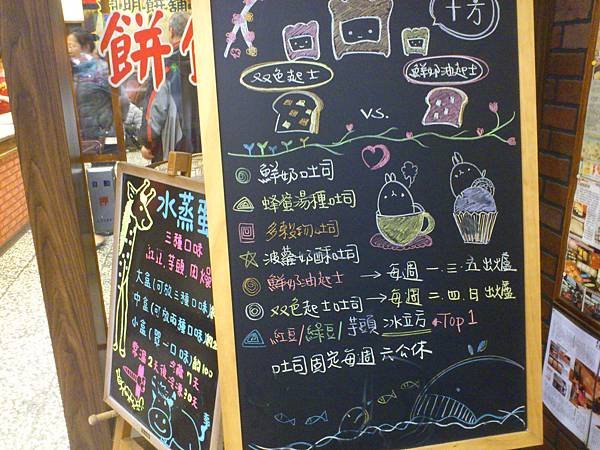 明餅舖
餅
十方
双色起士
鮮奶油起士
V.S.
鮮奶吐司
蜂蜜湯種吐司
多穀物吐司
波蘿奶酥吐司
鮮奶油起士 → 每週一.三.五出爐
双色起士吐司 → 每週二.四.日出爐
紅豆/綠豆/芋頭 冰立方 Top 1
吐司固定每週六公休
水蒸蛋
三種口味
大盒(可放三種口味)
中盒(可放兩種口味)
小盒(單一口味) 100